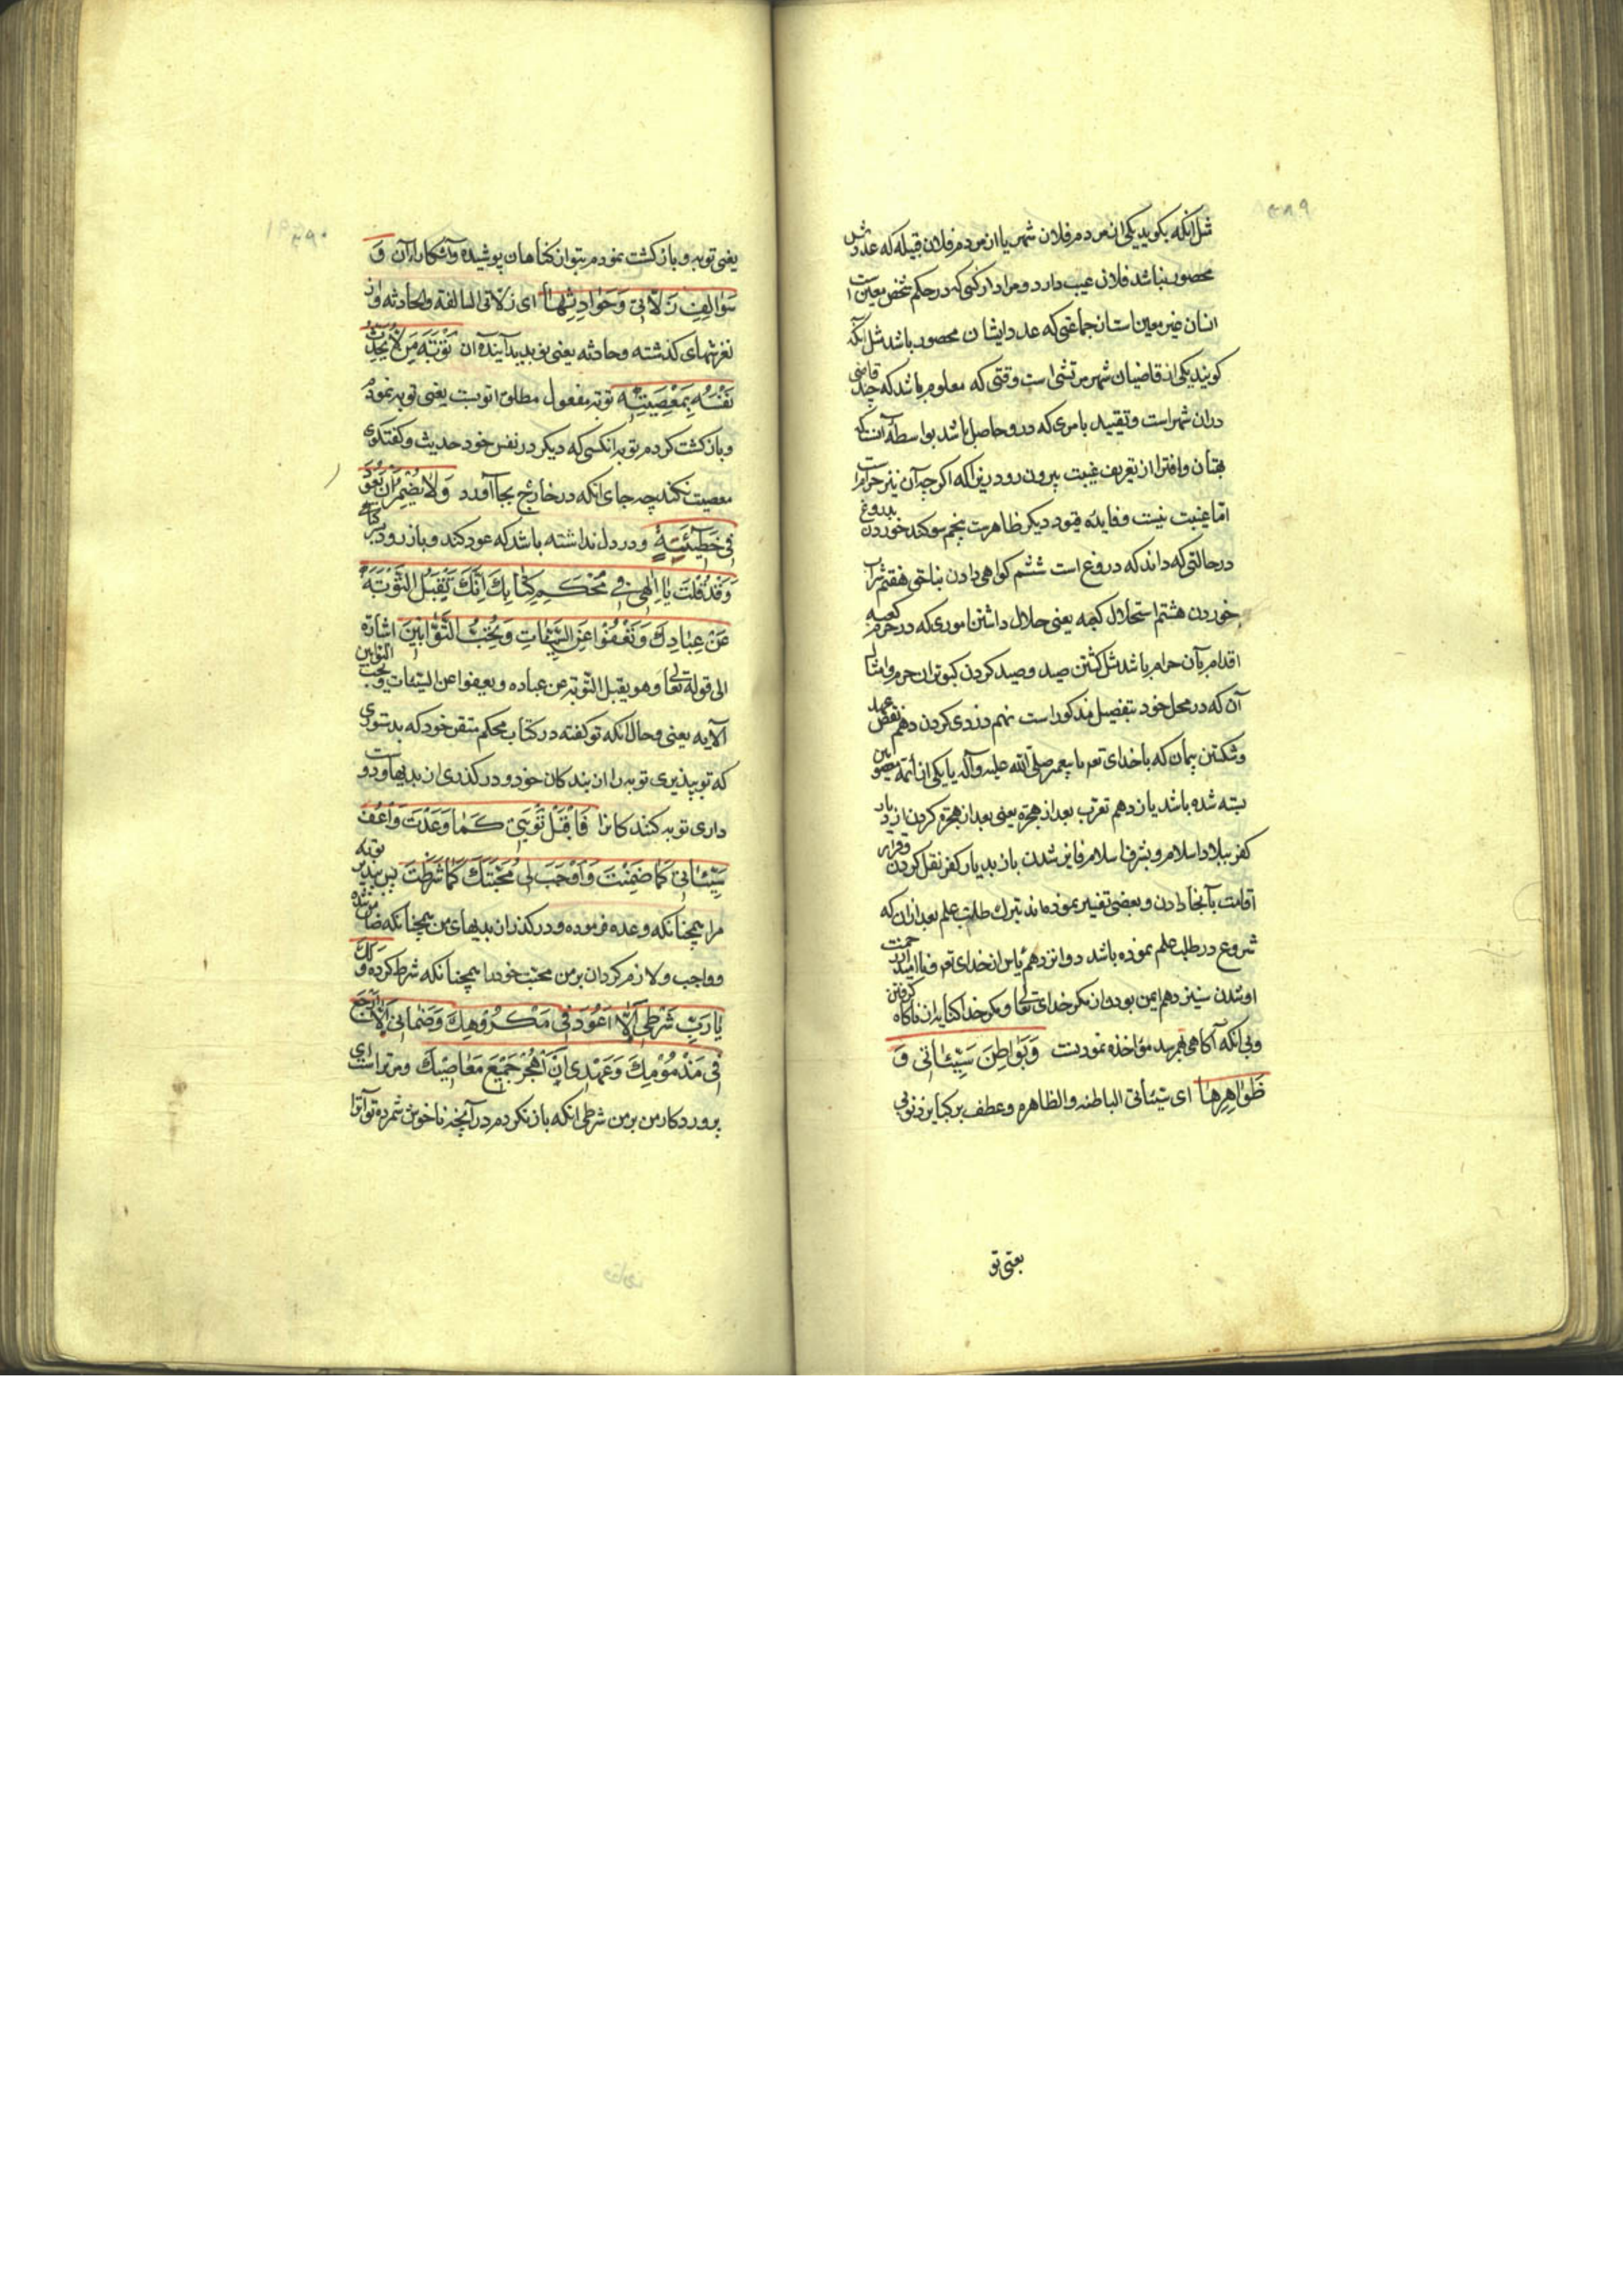 مثل آنکه بکوید یکی از مردم فلان شهر یا از مردم فلان قبیله که عددش
محصور نباشد فلان عیب دارد و مراد از کسی که در حکم شخص معین است
انسان غیر معین است از جماعتی که عدد ایشان محصور باشد مثل آنکه
کویند یکی از قاضیان شهر مرتشی است وقتی که معلوم باشد که چند قاضی
دران شهر است و تقیید بامری که درو حاصل باشد بواسطه آنست که
بهتان و افترا از تعریف غیبت بیرون رود زیرا که اکرچه آن نیز حرام است
اما غیبت نیست و فایده قیود دیکر ظاهرست پنجم سوکند خوردن بدروغ
درحالتی که داند که دروغ است ششم کواهی دادن بناحق هفتم شراب
خوردن هشتم استحلال کعبه یعنی حلال داشتن اموری که در حرم کعبه
اقدام بآن حرام باشد مثل کشتن صید و صید کردن کبوتران حرم و امثال
آن که در محل خود بتفصیل مذکور است نهم دزدی کردن دهم نقض عهد
و شکستن پیمان که با خدای تع یا پیغمبر صلی الله علیه وآله یا یکی از ائمه معصومین
بسته شده باشد یازدهم تعرب بعد از هجرة یعنی بعد از هجرة کردن از دیار
کفر ببلاد اسلام و بشرف اسلام فایز شدن باز بدیار کفر نقل کردن و قرار
اقامت بآنجا دادن و بعضی تفسیر نموده‌اند بترک طلب علم بعد ازان که
شروع در طلب علم نموده باشد دوازدهم یأس از خدای تع و ناامید از رحمت
او شدن سیزدهم ایمن بودن از مکر خدای تعالی و مکر خدا کنایه از ناکاه کرفتن
و بی آنکه آکاهی بهم رسد مؤاخذه نمودنست وَبَوَاطِنَ سَيِّئَاتِي وَ
ظَوَاهِرِهَا ای سیئاتی الباطنه والظاهره و عطف بر کبایر ذنوبی
یعنی تو
یعنی توبه و بازکشت نمودم بتو از کناهان پوشیده و آشکارا آن وَ
سَوَالِفِ زَلَّاتِي وَحَوَادِثِهَا ای زلاتی السالفة والحادثه و از
لغزشهای کذشته و حادثه یعنی نو پدید آینده آن تَوْبَةَ مَنْ لَا يُحَدِّثُ
نَفْسَهُ بِمَعْصِيَتِهِ توبه مفعول مطلق اتوبست یعنی توبه نمودم
و بازکشت کردم توبه انکسی که دیکر در نفس خود حدیث و کفتکوی
معصیت نکند چه جای آنکه در خارج بجا آورد وَلَا يُضْمِرُ أَنْ يَعُودَ
فِي خَطِيئَتِهِ و در دل نداشته باشد که عود کند و باز رود بر کناه
وَقَدْ قُلْتَ يَا إِلَهِي فِي مُحْكَمِ كِتَابِكَ إِنَّكَ تَقْبَلُ التَّوْبَةَ
عَنْ عِبَادِكَ وَتَعْفُوا عَنِ السَّيِّئَاتِ وَتُحِبُّ التَّوَّابِينَ اشاره
الی قوله تعالی وهو یقبل التوبه عن عباده و یعفوا عن السیئات و یحب التوابین
الآیه یعنی و حال آنکه تو کفته در کتاب محکم متقن خود که بدرستی
که تو بپذیری توبه را از بندکان خود و درکذری از بدیها و دوست
داری توبه کنندکانرا فَاقْبَلْ تَوْبَتِي كَمَا وَعَدْتَ وَاعْفُ
سَيِّئَاتِي كَمَا ضَمِنْتَ وَأَوْجِبْ لِي مَحَبَّتَكَ كَمَا شَرَطْتَ پس بپذیر توبه
مرا همچنانکه وعده فرموده و درکذر از بدیهای من همچنانکه ضامن شده
و واجب و لازم کردان بر من محبت خود را همچنانکه شرط کرده وَلَكَ
يَا رَبِّ شَرْطِي أَلَّا أَعُودَ فِي مَكْرُوهِكَ وَضَمَانِي أَلَّا أَرْجِعَ
فِي مَذْمُومِكَ وَعَهْدِي أَنْ أَهْجُرَ جَمِيعَ مَعَاصِيكَ و مرتراست ای
پروردکار من بر من شرطی آنکه باز نکردم در آنچه ناخوش شمرده تو آنرا